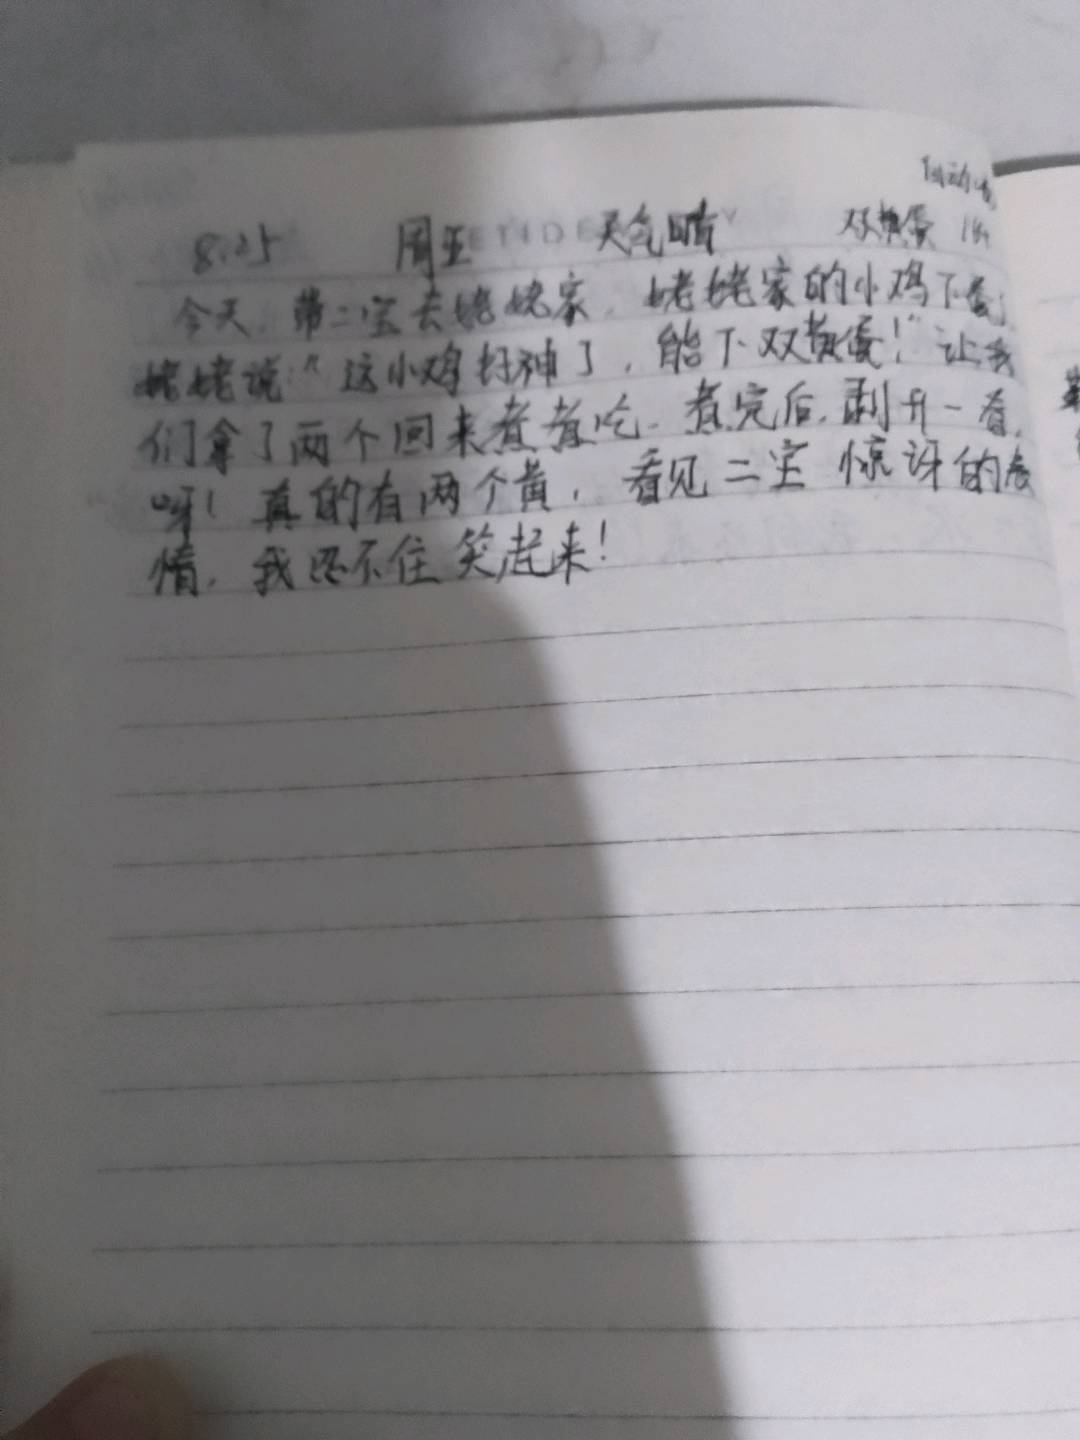 8.25 周五 天气晴 双黄蛋
今天,带二宝去姥姥家,姥姥家的小鸡下蛋了,
姥姥说:“这小鸡好神了,能下双黄蛋!”让我
们拿了两个回来煮煮吃.煮完后,剥开一看,
呀!真的有两个黄,看见二宝惊讶的表
情,我忍不住笑起来!